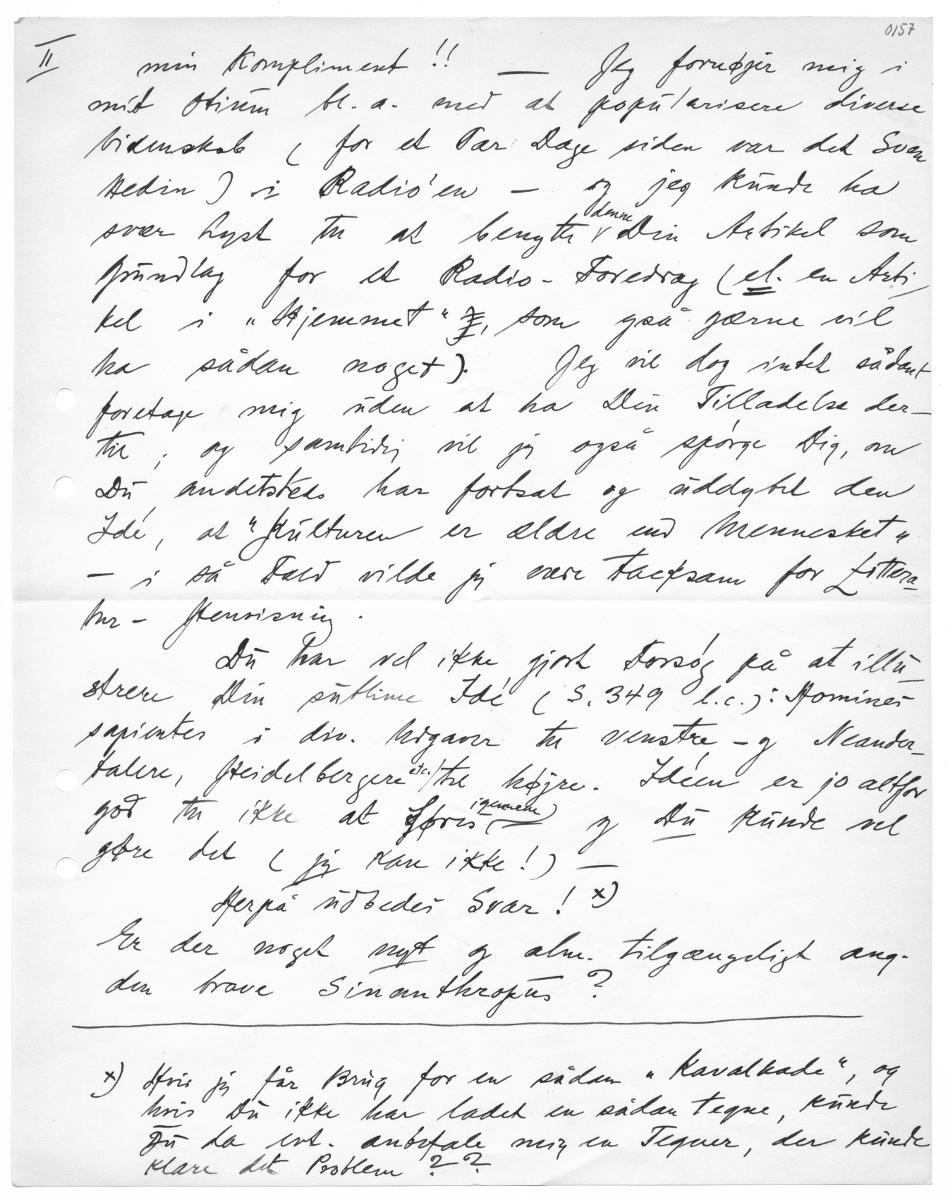 0157
II
min Kompliment!! — Jeg fornøjer mig i
mit Otium bl.a. med at popularisere diverse
Videnskab (for et Par Dage siden var det Sven
Hedin) i Radio'en — og jeg kunde ha
svær Lyst til at benytte denne Din Artikel som
Grundlag for et Radio-Foredrag (el. en Arti-
kel i "Hjemmet", som også gærne vil
ha sådan noget). Jeg vil dog intet sådant
foretage mig uden at ha Din Tilladelse der-
til, og samtidig vil jeg også spørge Dig, om
Du andetsteds har fortsat og uddybet den
Idé, at "Kulturen er ældre end Mennesket"
— i så Fald vilde jeg være taknemlig for Littera-
tur-Henvisning.
Du har vel ikke gjort Forsøg på at illu-
strere Din sublime Idé (S. 349 l.c.): Homines
sapientes i div. Udgaver til venstre — og Neander-
talere, Heidelbergere etc. til højre. Idéen er jo altfor
god til ikke at føres igennem og Du kunde vel
gøre det (jeg kan ikke!) —
Herpå udbedes Svar! x)
Er der noget nyt og alm. tilgængeligt ang.
den brave Sinanthropus?
x) Hvis jeg får Brug for en sådan "Kavalkade", og
hvis Du ikke har ladet en sådan tegne, kunde
Du da evt. anbefale mig en Tegner, der kunde
klare det Problem??